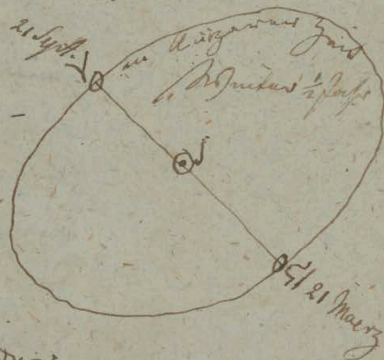 21 Sept.
in kürzerer Zeit
Winter ½ Jahr
21 Maerz